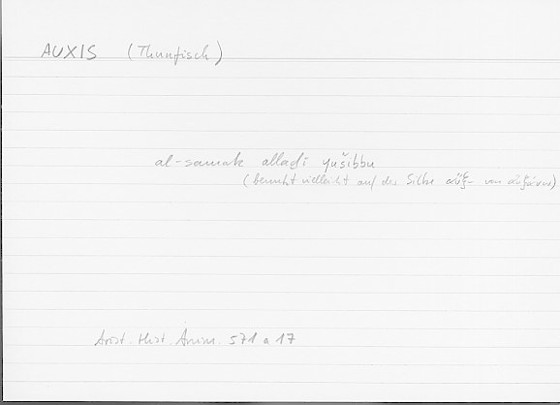 AUXIS (Thunfisch)
al-samak alladi yušibbu
(beruht vielleicht auf der Silbe αὐξ- von αὐξάνω)
Arist. Hist. Anim. 571 a 17